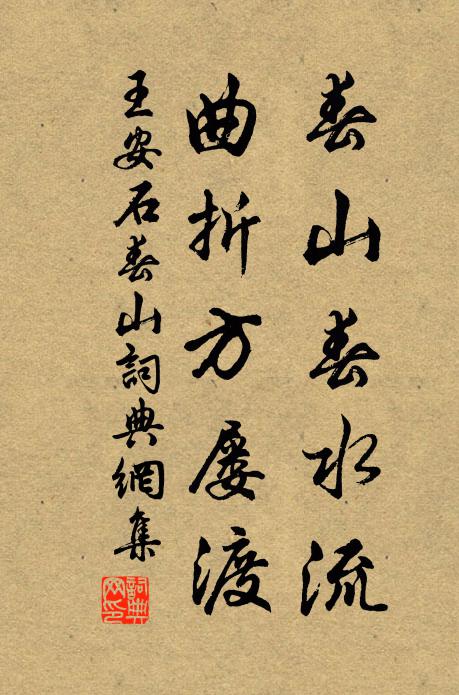 春山春水流
曲折方屡渡
王安石春山詞典網集
詞典网印